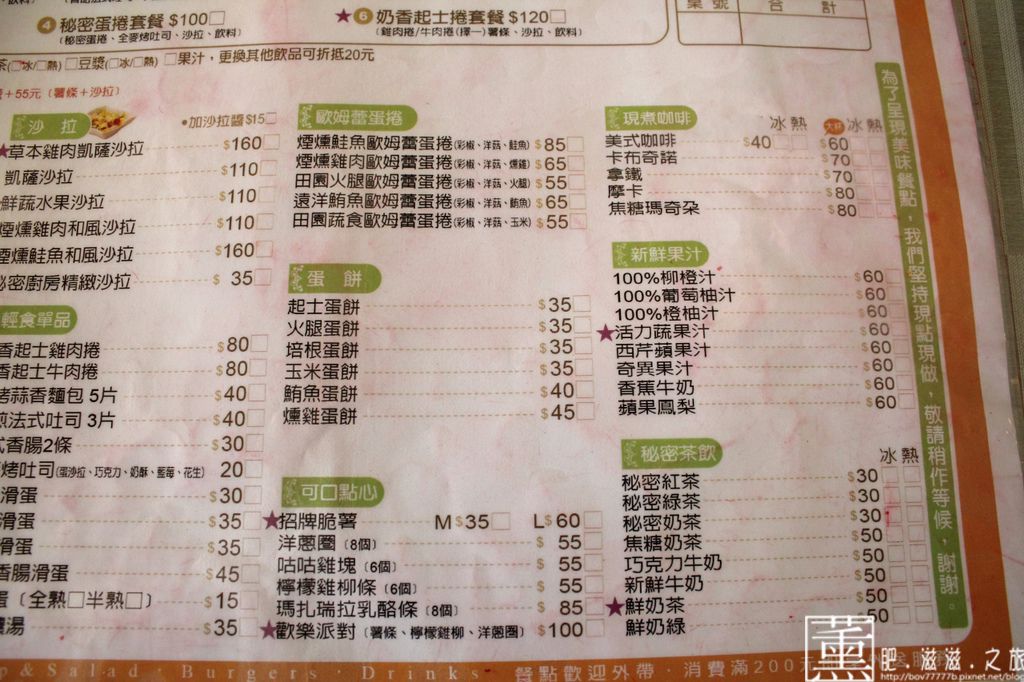 ④ 秘密蛋捲套餐 $100□
(秘密蛋捲、全麥烤吐司、沙拉、飲料)
★⑥ 奶香起士捲套餐 $120□
(雞肉捲/牛肉捲(擇一)薯條、沙拉、飲料)
合 計
茶(□冰/□熱) □豆漿(□冰/□熱) □果汁，更換其他飲品可折抵20元
+55元〔薯條+沙拉〕
沙 拉
•加沙拉醬$15□
★草本雞肉凱薩沙拉 $160□
凱薩沙拉 $110□
鮮蔬水果沙拉 $110□
煙燻雞肉和風沙拉 $110□
煙燻鮭魚和風沙拉 $160□
秘密廚房精緻沙拉 $ 35□
輕食單品
香起士雞肉捲 $80□
香起士牛肉捲 $80□
烤蒜香麵包 5片 $40□
煎法式吐司 3片 $40□
式香腸2條 $30□
烤吐司(蛋沙拉、巧克力、奶酥、藍莓、花生) 20□
滑蛋 $30□
滑蛋 $35□
滑蛋 $35□
香腸滑蛋 $45□
蛋〔全熟□半熟□〕 $15□
濃湯 $35□
歐姆蕾蛋捲
煙燻鮭魚歐姆蕾蛋捲(彩椒、洋菇、鮭魚) $85□
煙燻雞肉歐姆蕾蛋捲(彩椒、洋菇、燻雞) $65□
田園火腿歐姆蕾蛋捲(彩椒、洋菇、火腿) $55□
遠洋鮪魚歐姆蕾蛋捲(彩椒、洋菇、鮪魚) $65□
田園蔬食歐姆蕾蛋捲(彩椒、洋菇、玉米) $55□
蛋 餅
起士蛋餅 $35□
火腿蛋餅 $35□
培根蛋餅 $35□
玉米蛋餅 $35□
鮪魚蛋餅 $40□
燻雞蛋餅 $45□
可口點心
★招牌脆薯 M$35□ L$60□
洋蔥圈〔8個〕 $ 55□
咕咕雞塊〔6個〕 $ 55□
檸檬雞柳條〔6個〕 $ 55□
瑪扎瑞拉乳酪條〔8個〕 $ 85□
★歡樂派對〔薯條、檸檬雞柳、洋蔥圈〕 $100□
現煮咖啡
冰 熱 大杯 冰 熱
美式咖啡 $40□□ $60□□
卡布奇諾 $70□□
拿鐵 $70□□
摩卡 $80□□
焦糖瑪奇朵 $80□□
新鮮果汁
100%柳橙汁 $60□
100%葡萄柚汁 $60□
100%橙柚汁 $60□
★活力蔬果汁 $60□
西芹蘋果汁 $60□
奇異果汁 $60□
香蕉牛奶 $60□
蘋果鳳梨 $60□
秘密茶飲
冰 熱
秘密紅茶 $30□□
秘密綠茶 $30□□
秘密奶茶 $30□□
焦糖奶茶 $50□□
巧克力牛奶 $50□□
新鮮牛奶 $50□□
★鮮奶茶 $50□□
鮮奶綠 50□□
為了呈現美味餐點，我們堅持現點現做，敬請稍作等候，謝謝。
p & Salad · Burgers · Drinks 餐點歡迎外帶 · 消費滿200元
薰 肥.滋滋.之旅
http://bov77777b.pixnet.net/blog